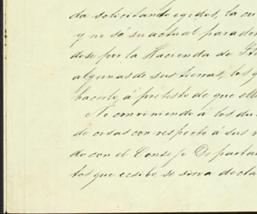 da solicitando egidos, la cu
y no só su actual paradero
dese por la Hacienda de
algunas de sus tierras, los q
hacerlo á pretesto de que ell
No conviniendo á los du
de cosas con respecto á sus
do con el Consejo Departa
tos que ecsibe, se sirva decla